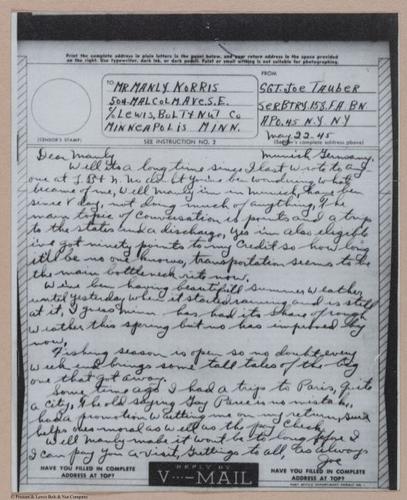 Print the complete address in plain letters in the panel below, and your return address in the space provided
on the right. Use typewriter, dark ink, or dark pencil. Faint or small writing is not suitable for photographing.
TO
MR. MANLY NORRIS
504-MALCOLM AVE. S.E.
% LEWIS, BOLT & NUT CO
MINNEAPOLIS MINN.
FROM
SGT. JOE TAUBER
SER BTRY, 158, FA. BN
APO. 45 N.Y. NY
May 22-45
(CENSOR'S STAMP)
SEE INSTRUCTION NO. 2
(Sender's complete address above)
Munich Germany.
Dear Manly
Well its a long time since I last wrote to any
one at L Bt N. no doubt you've be wondering what
became of me, Well Manly i'm in Munich, have been
since V day, not doing much of anything, The
main topic of conversation is points and a trip
to the states and a discharge, yes im also eligible
ive got ninety points to my credit so how long
itll be no one knows, transportation seems to be
the main bottleneck rite now.
Weive ben having beautifull summer weather
until yesterday when it started raining and is still
at it, I guess minn has had its share of rough
weather this spring but no has improved by
now.
Fishing season is open so no doubt every
week end brings some tall tales of the big
one that got away.
Some time ago I had a trip to Paris, quite
a city, the old saying Gay Paree is no mistake,
had a promotion waiting me on my return, sure
helps ones moral as well as the pay check.
Well Manly make it wont be to long before I
I can pay you a visit, Greetings to all, as always
Joe
HAVE YOU FILLED IN COMPLETE
ADDRESS AT TOP?
REPLY BY
V···—MAIL
HAVE YOU FILLED IN COMPLETE
ADDRESS AT TOP?
© Lewis Bolt & Nut Company